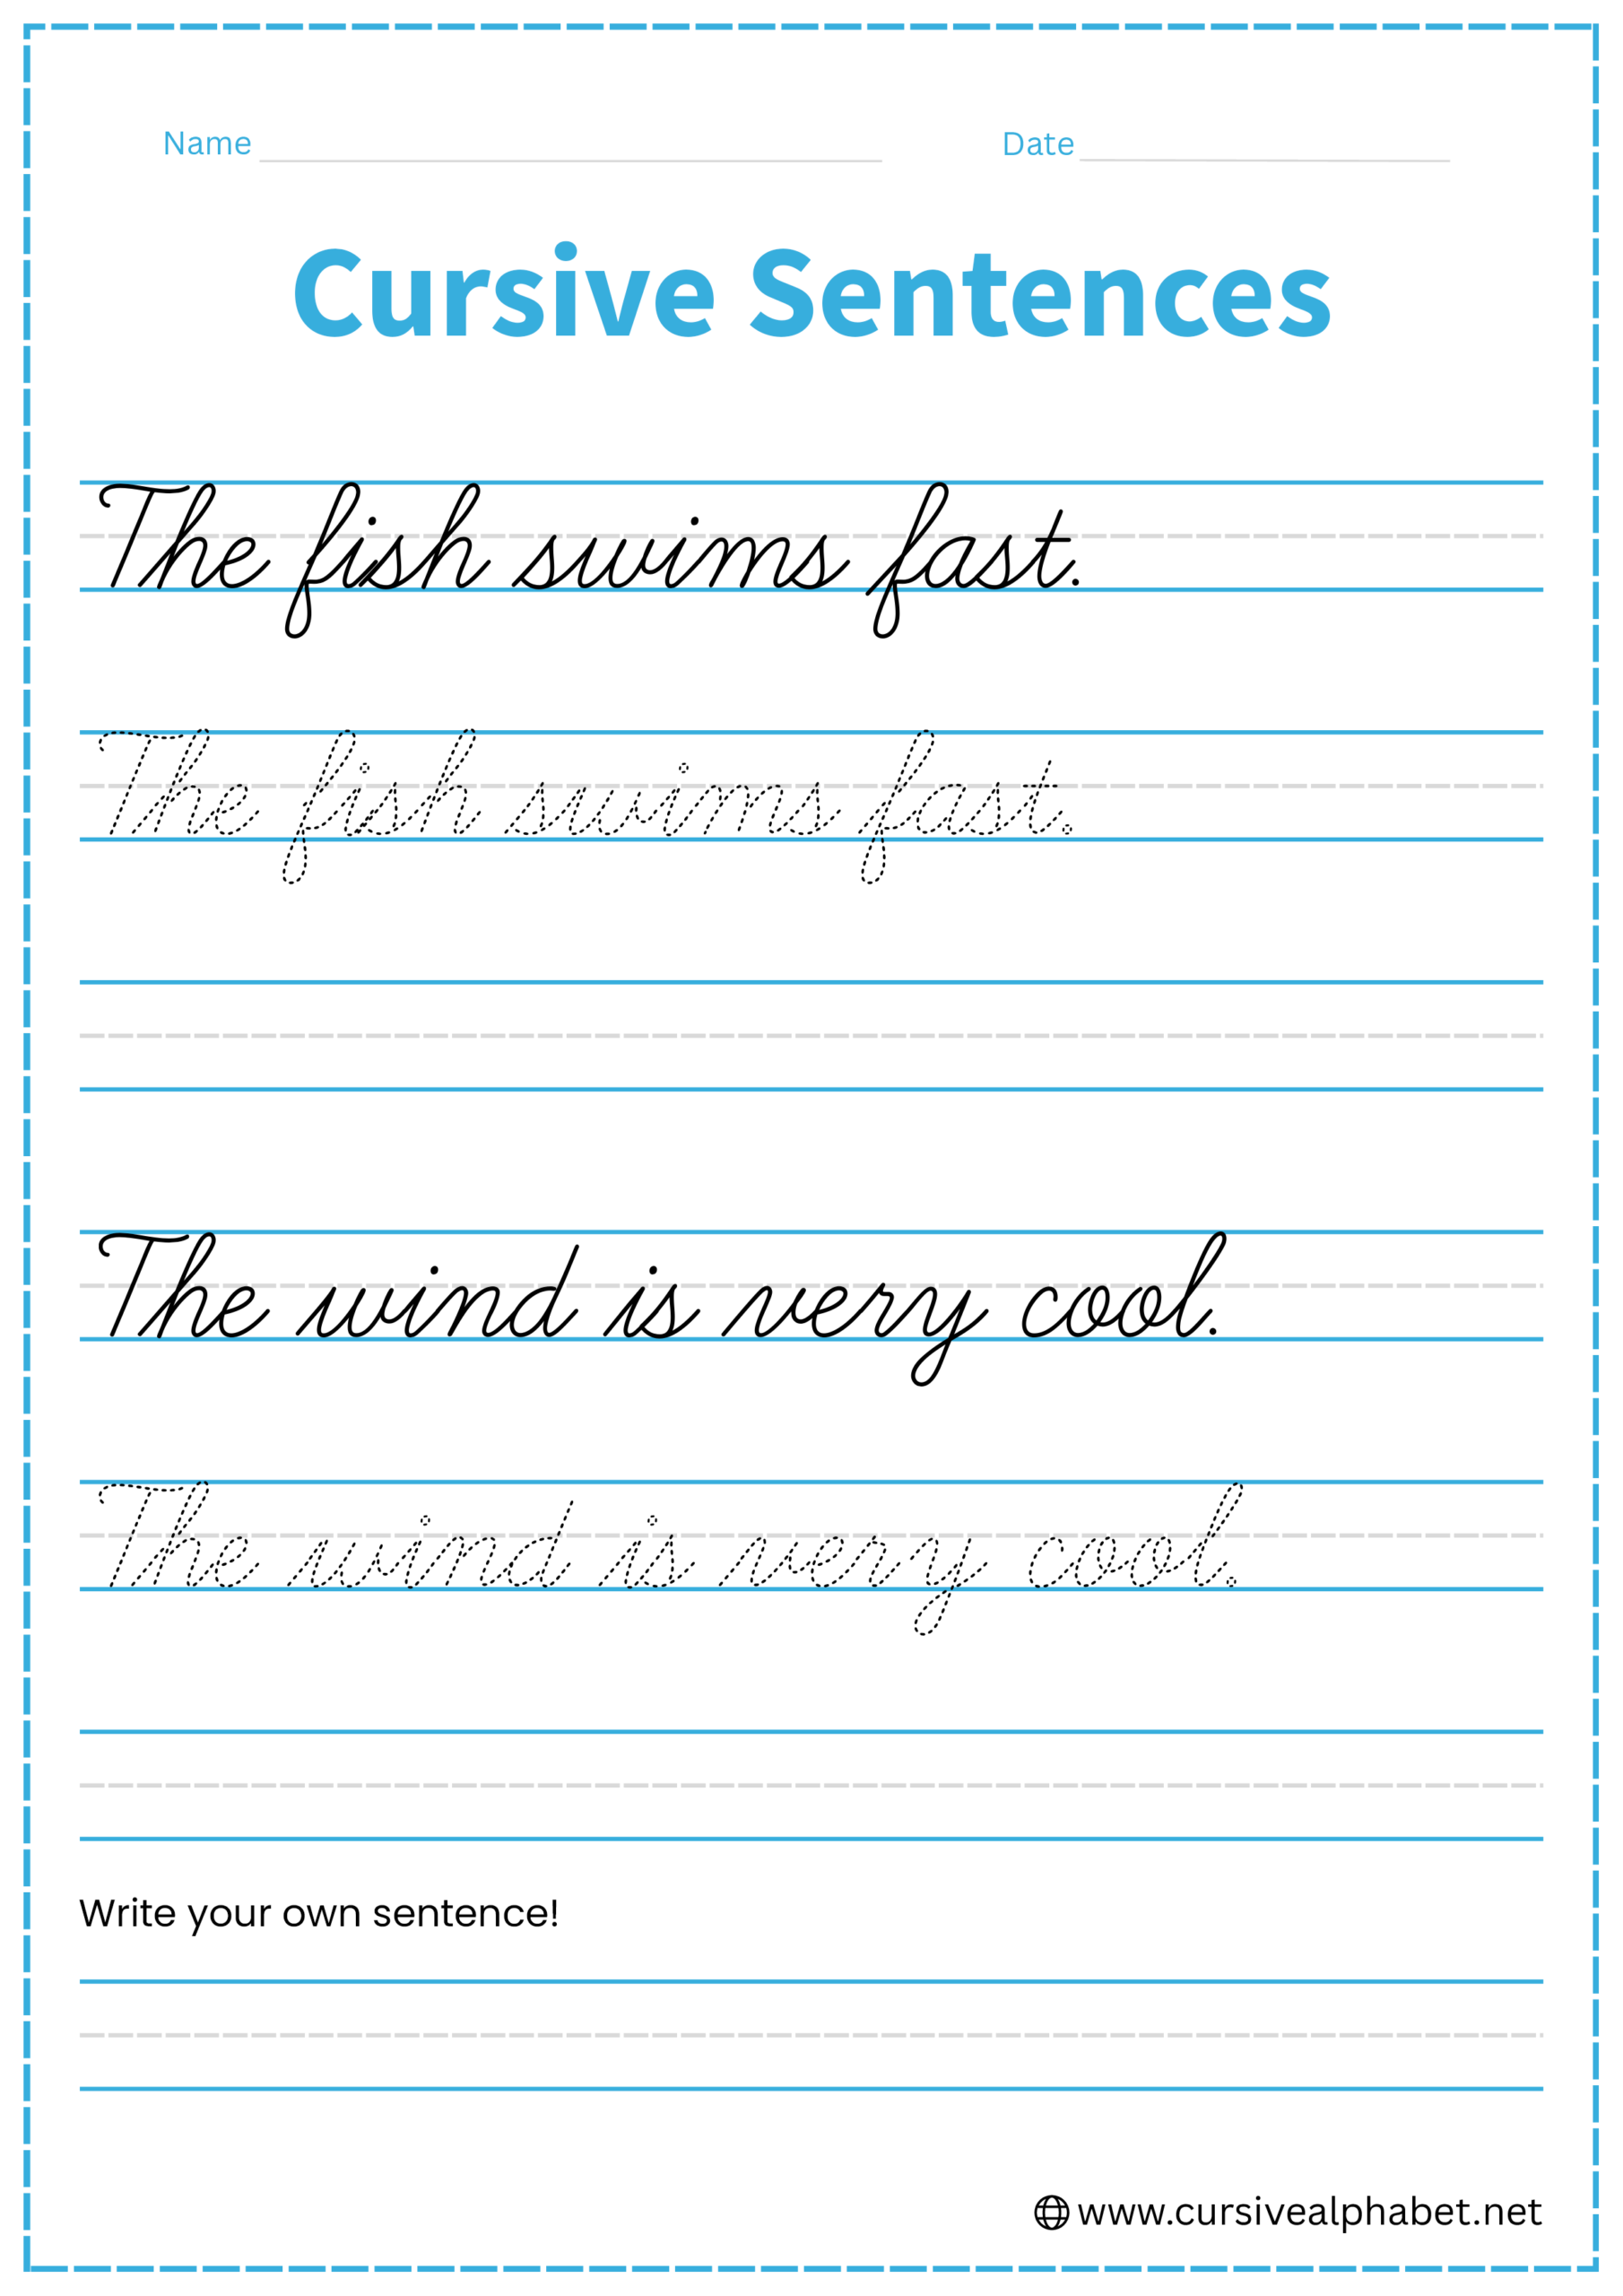 Name Date
Cursive Sentences
The fish swims fast.
The fish swims fast.
The wind is very cool.
The wind is very cool.
Write your own sentence!
www.cursivealphabet.net